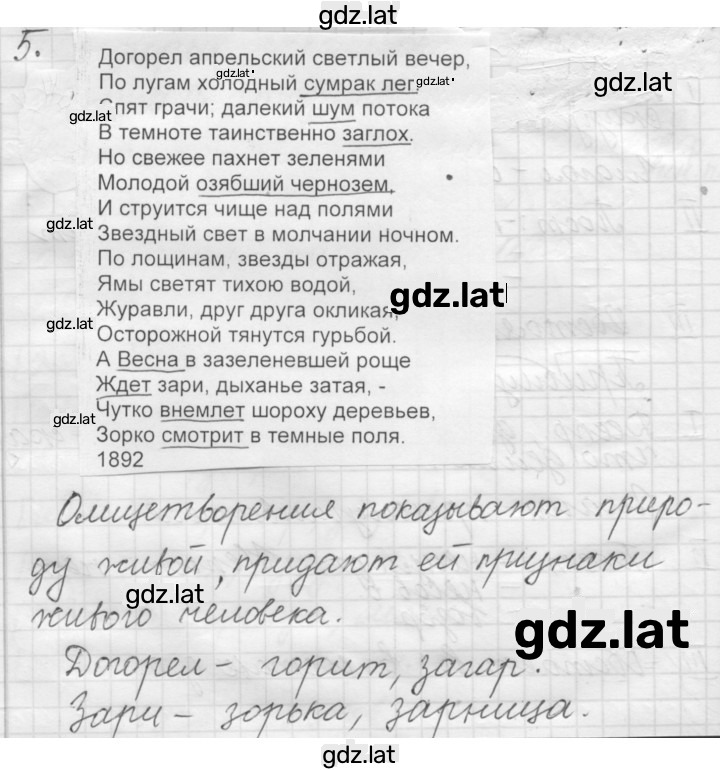 gdz.lat
5.
Догорел апрельский светлый вечер,
gdz.lat
По лугам холодный сумрак лег.
gdz.lat
Спят грачи; далекий шум потока
gdz.lat
В темноте таинственно заглох.
Но свежее пахнет зеленями
Молодой озябший чернозем,
И струится чище над полями
gdz.lat
Звездный свет в молчании ночном.
По лощинам, звезды отражая,
Ямы светят тихою водой,
gdz.lat
Журавли, друг друга окликая,
gdz.lat
Осторожной тянутся гурьбой.
А Весна в зазеленевшей роще
Ждет зари, дыханье затая, -
Чутко внемлет шороху деревьев,
gdz.lat
Зорко смотрит в темные поля.
1892
Олицетворения показывают приро-
ду живой, придают ей признаки
gdz.lat
живого человека.
gdz.lat
Догорел – горит, загар.
Зари – зорька, зарница.
gdz.lat